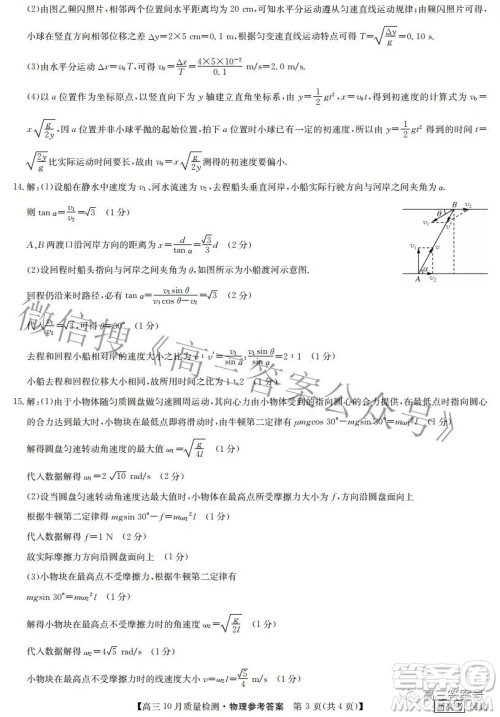 (2)由图乙频闪照片,相邻两个位置间水平距离均为 20 cm,可知水平分运动遵从匀速直线运动规律;由频闪照片可得,
小球在竖直方向相邻位移之差 △y=2×5 cm=0.1 m,根据匀变速直线运动特点可得 T=√(△y/g)=0.10 s.
(3)由水平分运动 △x=v₀T,可得 v₀=△x/T=4×5×10⁻²/0.1 m/s=2.0 m/s.
(4)以 a 位置作为坐标原点,以竖直向下为 y 轴建立直角坐标系,由 y=½gt²,x=v₀t,得到初速度的计算式为 v₀=
x√(g/2y),因 a 位置并非小球平抛的起始位置,拍下 a 位置时小球已有一定的初速度,故由 y=½gt² 得到的时间 t=
√(2y/g)比实际运动时间要长,故 v₀=x√(g/2y)测得的初速度要偏小.
14.解:(1)设船在静水中速度为 v₁、河水流速为 v₂,去程船头垂直河岸,小船实际行驶方向与河岸夹角为 α.
则 tan α=v₁/v₂=√3 (1分)
A、B 两渡口沿河岸方向的距离为 x=d/tan α=√3/3 d (2分)
(2)设回程时船头指向与河岸之间夹角为 θ,如图所示为小船渡河示意图.
回程仍沿来时路径,必有 tan α=v₁sin θ/(v₁cos θ-v₂) (2分)
代入v₁/v₂=√3,可得 θ=30° (1分)
去程和回程小船相对岸的速度大小之比 v∶v′=v₁/sin α∶v₁sin θ/sin α=2∶1 (1分)
小船去程和回程位移大小相等,故所用时间之比为 1∶2 (1分)
15.解:(1)由于小物体随匀质圆盘做匀速圆周运动,其向心力由小物体受到的指向圆心的合力提供,在最下端时指向圆心的合力最小.
根据牛顿第二定律得 μmgcos 30°-mgsin 30°=mω₁²l (1分)
解得圆盘匀速转动角速度的最大值 ω₁=√(g/4l) (1分)
代入数据解得 ω₁=2√10 rad/s (1分)
(2)设当圆盘匀速转动时角速度达最大值,小物体在最高点时所受摩擦力沿圆盘面向上
根据牛顿第二定律得 mgsin 30°-f=mω₁²l (1分)
代入数据解得 f=1 N (2分)
故实际摩擦力方向沿圆盘面向上 (1分)
(3)小物块在最高点不受摩擦力时,根据牛顿第二定律有
mgsin 30°=mω₂²l (1分)
解得小物块在最高点不受摩擦力时的角速度 ω₂=√(g/2l) (1分)
代入数据解得 ω₂=4√5 rad/s (1分)
故小物块在最高点不受摩擦力时的线速度大小 v=ω₂l=√5/4 m/s (1分)
【高三 10 月质量检测·物理参考答案 第 3 页(共 4 页)】
微信搜《高三答案公众号》